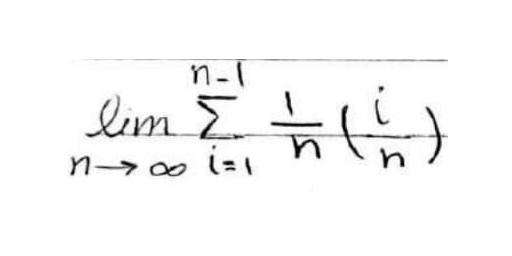 lim_{n→∞} \sum_{i=1}^{n-1} \frac{1}{n} \left( \frac{i}{n} \right)